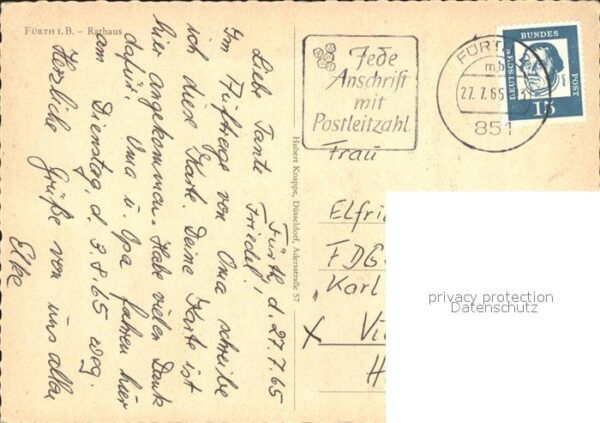 FÜRTH I. B. – Rathaus
Fürth, d. 27.7.65
Liebe Tante Friedel!
Im Auftrage von Oma schreibe
ich diese Karte. Deine Karte ist
hier angekommen. Habe vielen Dank
dafür. Oma u. Opa fahren hier
am Dienstag, d. 3.8.65 weg.
Herzliche Grüße von uns allen
Elke
Hubert Knappe, Düsseldorf, Adersstraße 57
Jede
Anschrift
mit
Postleitzahl
FÜRTH
27.7.65
851
DEUTSCHE
BUNDES
POST
15
Frau
Elfri
FDG
"Karl
x Vi
H
privacy protection
Datenschutz